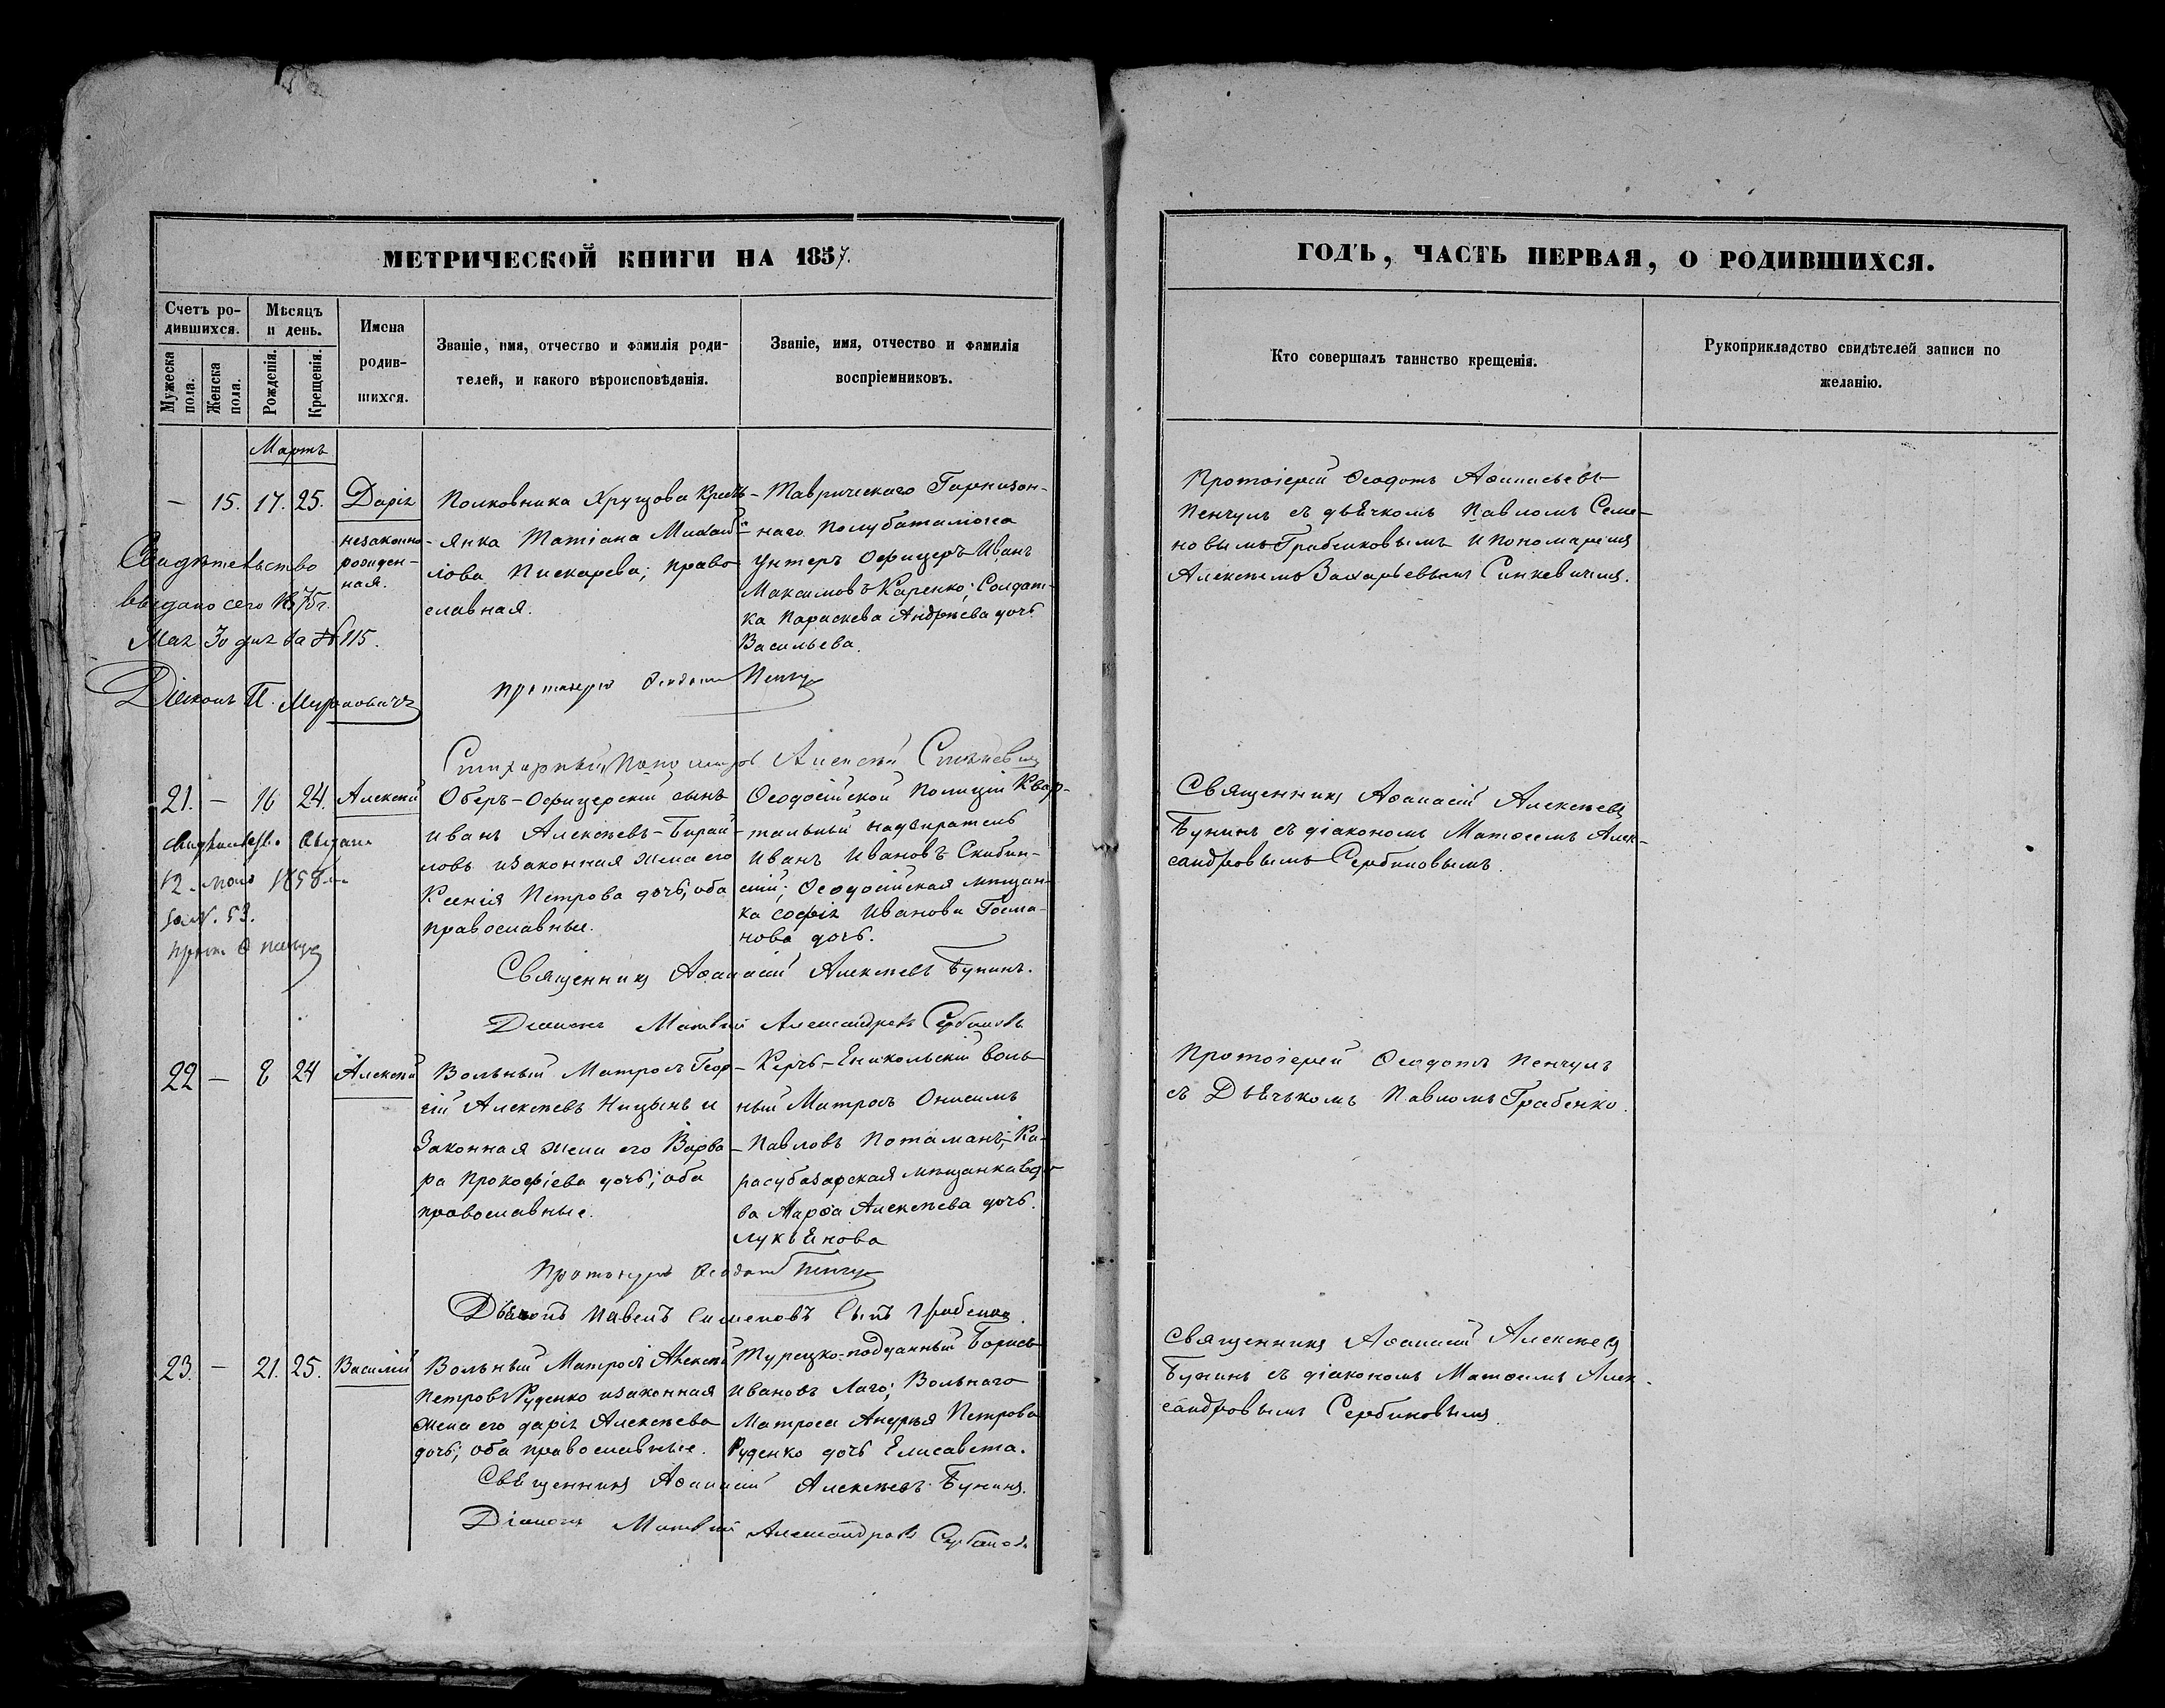 МЕТРИЧЕСКОЙ КНИГИ НА 1857.
Счетъ ро-
дившихся.
Мѣсяцъ
и день.
Мужеска
пола.
Женска
пола.
Рожденія.
Крещенія.
Имена
родив-
шихся.
Званіе, имя, отчество и фамилія роди-
телей, и какого вѣроисповѣданія.
Званіе, имя, отчество и фамилія
воспріемниковъ.
Мартъ
— 15. 17. 25. Дарія
незаконно
рожден-
ная.
Свидѣтельство
выдано сего 1875г.
Мая 30 дня за № 115.
Діаконъ П.
Полковника Хрущова Крест-
янка Татіана Михай-
лова Пискарева; право
славная.
Таврическаго Гарнизон-
наго Полубаталіона
Унтеръ Офицеръ Иванъ
Максимовъ Каренко; Солдат-
ка Параскева Андрѣева дочь
Васильева.
Протоіерей Ѳеодотъ Пенчулъ
Стихарный Пономарь Алексѣй Синкевичъ
21. — 16 24. Алексѣй
Свидѣтельст. выдано
12 1858
за № 53.
Прот. Ѳ Пенчулъ
Оберъ-Офицерскій сынъ
Иванъ Алексѣевъ-Бирай-
ловъ и законная жена его
Ксенія Петрова дочь, оба
православные.
Ѳеодосійской Полиціи Квар-
тальный надзиратель
Иванъ Ивановъ Скибин-
скій; Ѳеодосійская мѣщан-
ка Софія Иванова Госма-
нова дочь.
Священникъ Аѳанасій Алексѣевъ Бунинъ.
Діаконъ Матвѣй Александровъ Сербиновъ
22 — 8 24 Алексѣй
Вольный Матросъ Геор-
гій Алексѣевъ Ницынъ и
Законная жена его Варва-
ра Прокофіева дочь; оба
православные.
Керчь-Еникольскій воль-
ный Матросъ Онисимъ
Павловъ Потаманъ; Ка-
расубазарская мѣщанка вдо-
ва Марѳа Алексѣева дочь
Лукьянова
Протоіерей Ѳеодотъ Пенчулъ
Дьячокъ Павелъ Сименовъ Сынъ Грабенко.
23. — 21. 25. Василій
Вольный Матросъ Алексѣй
Петровъ Руденко и законная
жена его Дарія Алексѣева
дочь; оба православные.
Турецко-подданный Борисъ
Ивановъ Лаго; Вольнаго
Матроса Андрѣя Петрова
Руденко дочь Елисавета.
Священникъ Аѳанасій Алексѣевъ Бунинъ.
Діаконъ Матвѣй Александровъ Сербиновъ
ГОДЪ, ЧАСТЬ ПЕРВАЯ, О РОДИВШИХСЯ.
Кто совершалъ таинство крещенія.
Рукоприкладство свидѣтелей записи по
желанію.
Протоіерей Ѳеодотъ Аѳанасьевъ
Пенчулъ съ дьячкомъ Павломъ Семе-
новымъ Грабенковымъ и Пономаремъ
Алексѣемъ Захарьевымъ Синкевичемъ.
Священникъ Аѳанасій Алексѣевъ
Бунинъ съ діакономъ Матѳеемъ Алек-
сандровымъ Сербиновымъ.
Протоіерей Ѳеодотъ Пенчулъ
съ Дьячькомъ Павломъ Грабенко.
Священникъ Аѳанасій Алексѣевъ
Бунинъ съ діакономъ Матѳеемъ Алек-
сандровымъ Сербиновымъ.